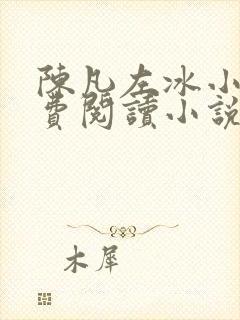 陳凡左冰小
費閱讀小說
木犀